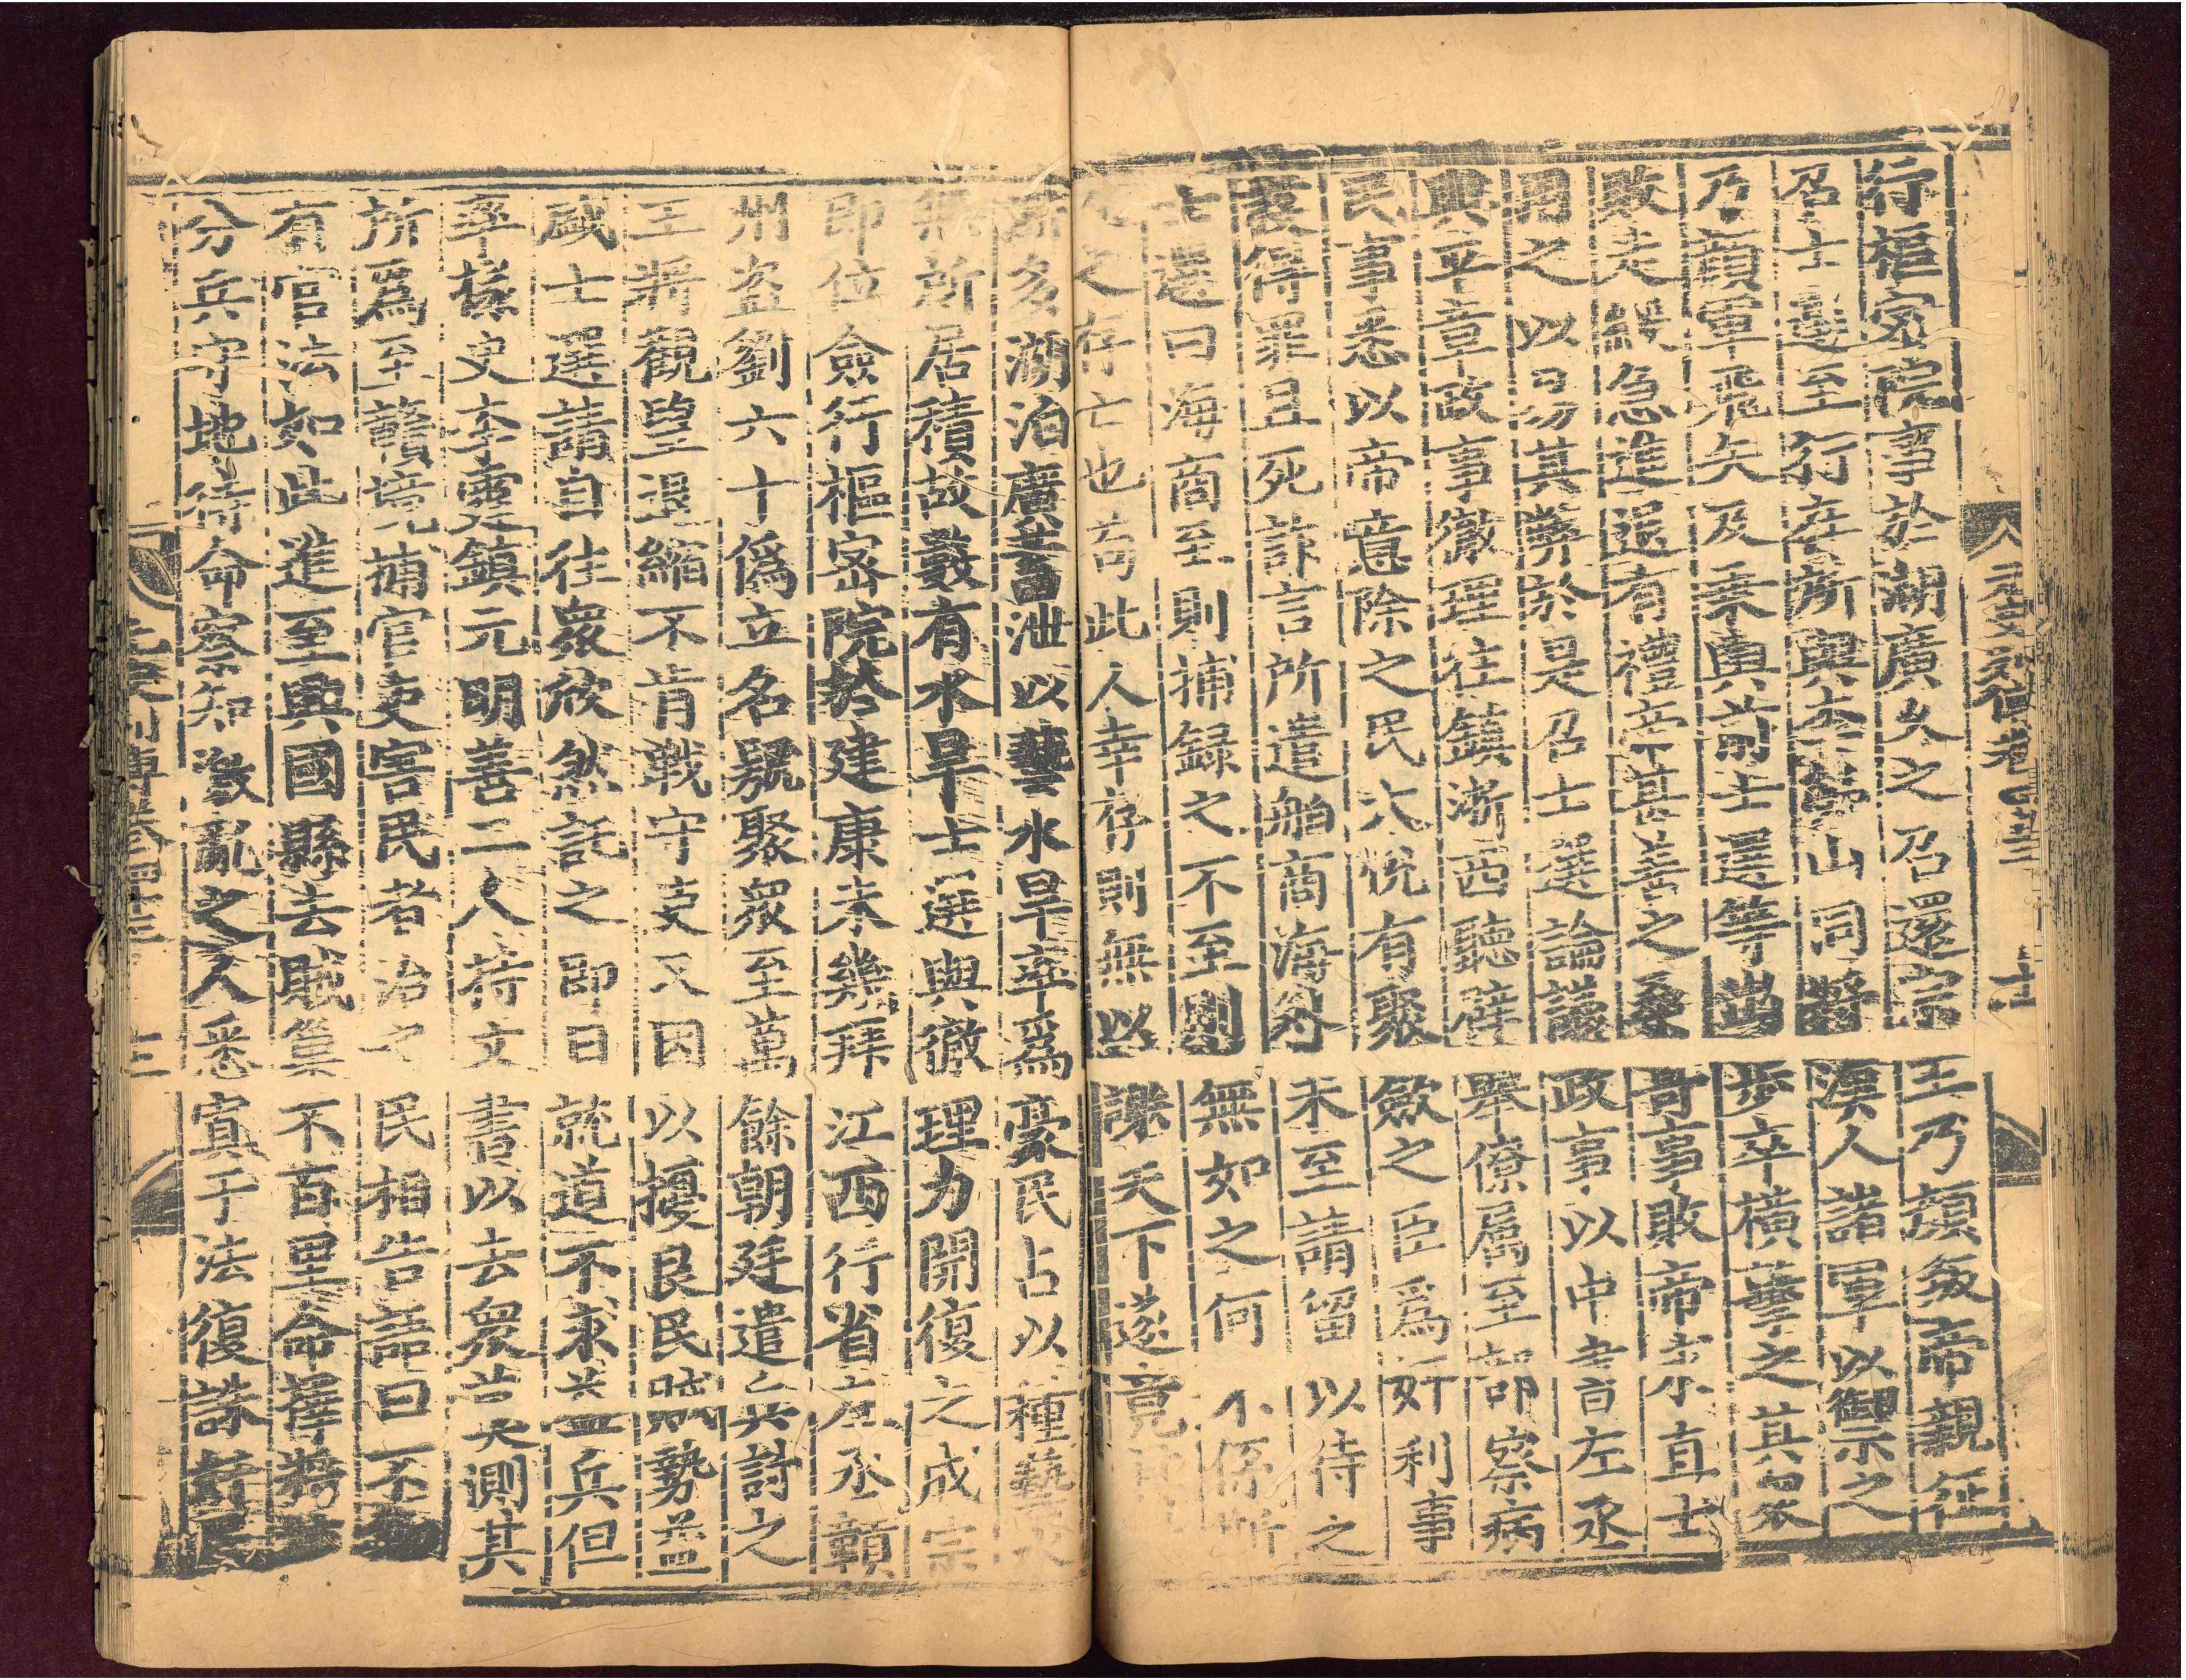 元史列傳卷四十三 十二
行樞密院事於湖廣久之召還宗王乃顏叛帝親征
召士選至行在所與李勞山同將漢人諸軍以御之
乃顏軍飛矢及乘輿前士選等出步卒橫擊之其衆
敗走緩急進退有禮帝甚善之桑哥事敗帝求直士
用之以易其弊於是召士選論議政事以中書左丞
與平章政事徹理往鎮浙西聽辟舉僚屬至部察病
民事悉以帝意除之民大悅有聚歛之臣爲奸利事
發得罪且死詐言所遣舶商海外未至請留以待之
士選曰海商至則捕録之不至則無如之何不係斯
人之存亡也苟此人幸存則無以謝天下遂竟
浙多湖泊廣蓄泄以藝水旱率爲豪民占以種藝水
無所居積故數有水旱士選與徹理力開復之成宗
即位僉行樞密院於建康未幾拜江西行省左丞贛
州盗劉六十僞立名號聚衆至萬餘朝廷遣兵討之
主將觀望退縮不肯戰守吏又因以擾良民賊勢益
盛士選請自往衆欣然託之即日就道不求益兵但
率掾史李霆鎮元明善二人持文書以去衆莫測其
所爲至贛境捕官吏害民者治之民相告語曰不知
有官法如此進至興國縣去賊巢不百里命擇將
分兵守地待命察知激亂之人悉寘于法復誅奸民
元史列傳卷四十三 十三